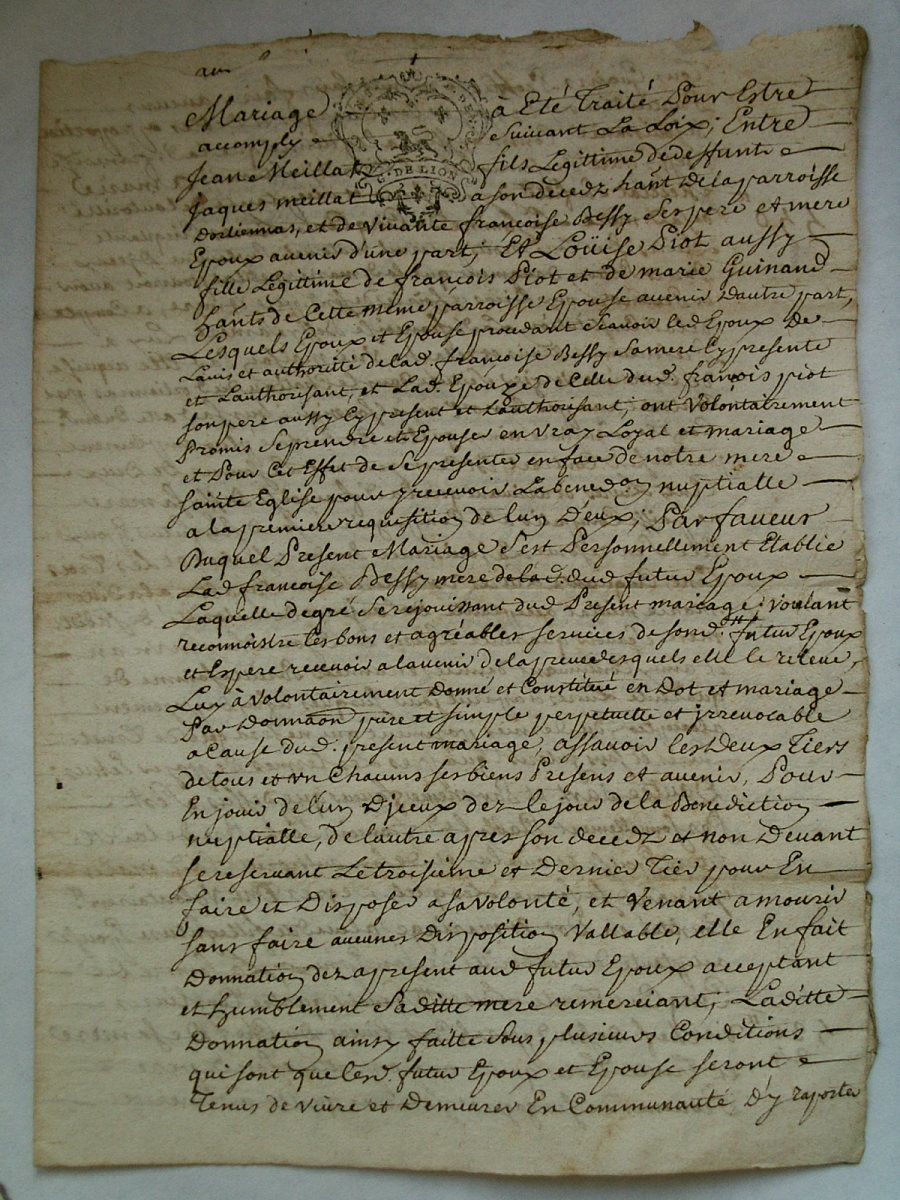 au
Mariage à Eté Traité Pour Estre
accomply Suivant La Loix; Entre
Jean Meillat fils Légittime de deffunt
DE LION
Jaques meillat a son decedz hant De la parroisse
et de vivante françoise Bessy Ses pere et mere
Epoux avenir d'une part; Et Loüise Piot aussy
fille Legittime de françois Piot et de marie Guinand
hants de Cette meme parroisse Epouse avenir dautre part,
Lesquels Epoux et Epouse procedant Scavoir led. Epoux De
Lavis et authorité de lad. françoise Bessy Sa mere Cy presente
et Lauthorisant, et Lad. Epouze de Celle dud. françois piot
son pere aussy Cy present et Lauthorisant; ont Volontairement
Promis Se prendre et Epouser en vray Loyal et mariage
et Pour Cet Effet de Se presenter en face de notre mere
sainte Eglise pour y recevoir La bened.on nuptialle
a la premiere requisition de lun D'eux; Par faveur
Duquel Present Mariage S'est Personnellement Etablie
Lad. françoise Bessy mere de lad. dud. futur Epoux
Laquelle de gré Se rejouissant dud. Present mariage; voulant
reconnoistre les bons et agréables services de son d. futur Epoux
et Espere recevoir a lavenir de la preuve desquels elle le releve,
Luy à volontairement Donné et Constitué en Dot et mariage
Par Donnaon pure et simple perpetuelle et irrevocable
a Cause dud. present mariage, assavoir les Deux Tiers
de tous et un Chacuns ses biens Presens et avenir, Pour
En jouir de lun D'jceux dez le jour de la Benediction
nuptialle, de lautre apres son decedz et non Devant
se reservant Le troisieme et Dernier Tier pour En
faire et Disposer a sa volonté, et Venant a mourir
sans faire aucunes Disposition Vallable, elle En fait
Donnation dez a present aud. futur Epoux acceptant
et humblement Saditte mere remerciant; Laditte
Donnation ainsy faitte Sous plusieurs Conditions
qui sont que lesd. futur Epoux et Epouse seront
Tenus de vivre et Demeurer En Communauté D'y raporter